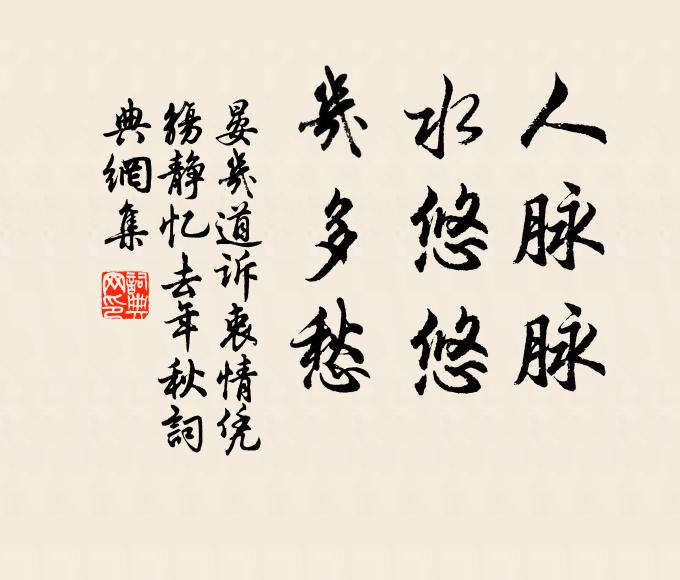 人脉脉
水悠悠
几多愁
晏几道诉衷情凭
觞静忆去年秋詞
典網集
詞典網印